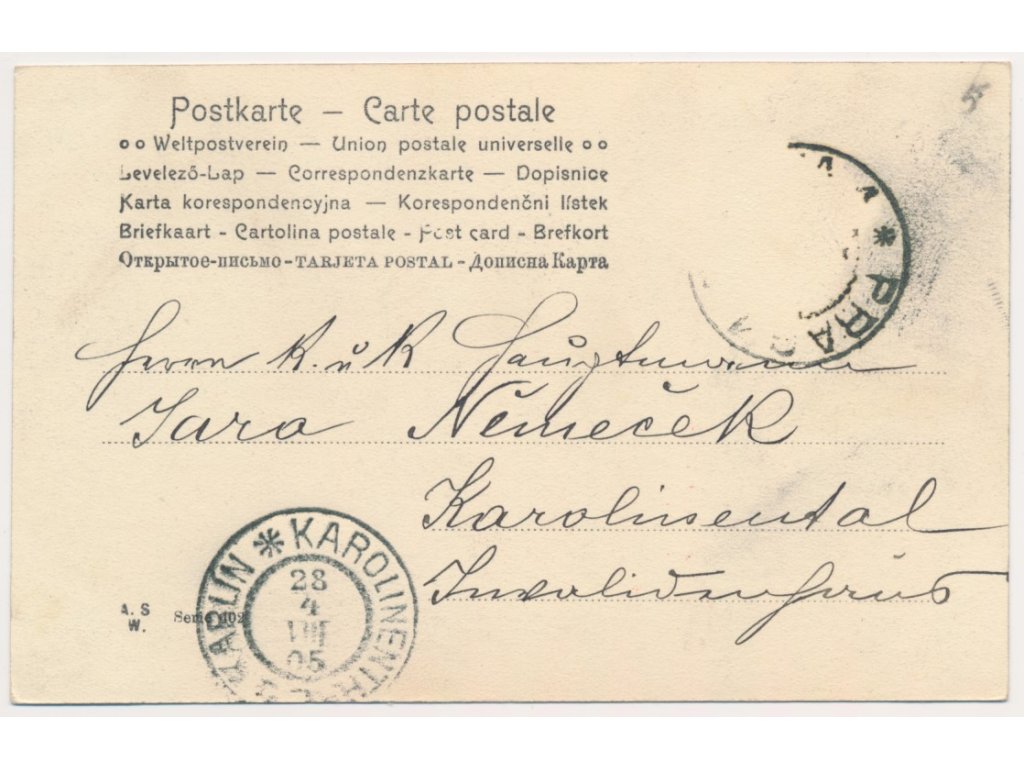 Postkarte — Carte postale
oo Weltpostverein — Union postale universelle oo
Levelező-Lap — Correspondenzkarte — Dopisnice
Karta korespondencyjna — Korespondenční lístek
Briefkaart - Cartolina postale - Post card - Brefkort
Открытое-письмо - TARJETA POSTAL - Дописна Карта
5
* PRAG
Herrn K. u K Hauptmann
Jara Němeček
Karolinental
Invalidenhaus
KARLIN * KAROLINENTH
28
4
VIII
05
A. S
W.
Serie 402